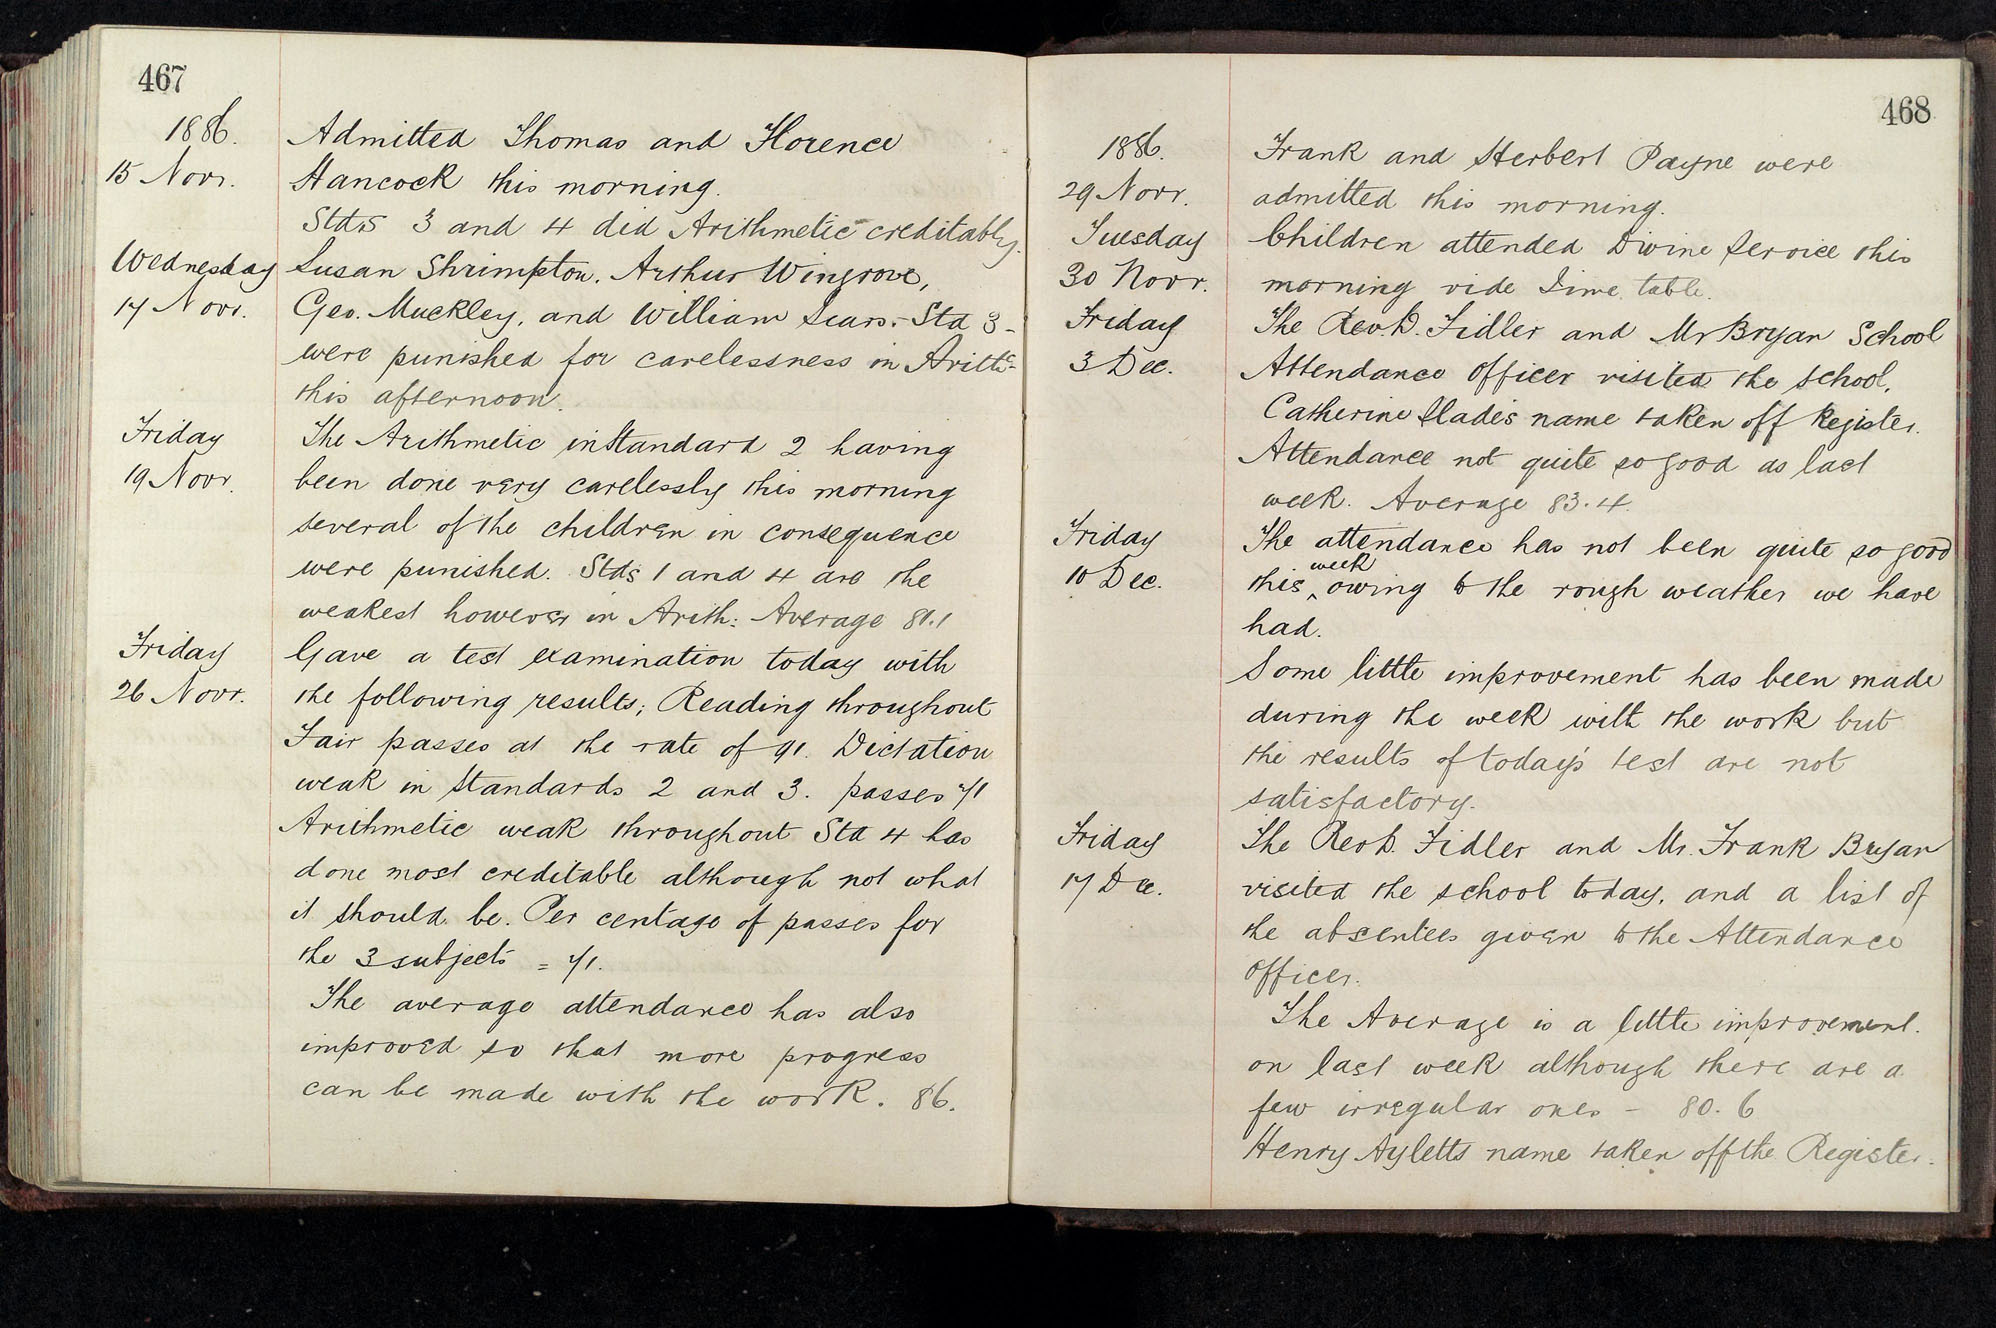 467
1886. Admitted Thomas and Florence
15 Novr. Hancock this morning.
Stds 3 and 4 did Arithmetic creditably.
Wednesday Susan Shrimpton. Arthur Wingrove,
17 Novr. Geo. Muckley, and William Sears. - Std 3 -
were punished for carelessness in Arithc -
this afternoon.
Friday The Arithmetic in Standard 2 having
19 Novr. been done very carelessly this morning
several of the children in consequence
were punished. Stds 1 and 4 are the
weakest however in Arith: Average 81.1
Friday Gave a test examination today with
26 Novr. the following results; Reading throughout
Fair passes at the rate of 91. Dictation
weak in Standards 2 and 3. passes 71
Arithmetic weak throughout Std 4 has
done most creditable although not what
it should be. Per centage of passes for
the 3 subjects = 71.
The average attendance has also
improved so that more progress
can be made with the work. 86.
468
1886. Frank and Herbert Payne were
29 Novr. admitted this morning.
Tuesday Children attended Divine Service this
30 Novr. morning vide Time table.
Friday The Revd. Fidler and Mr Bryan School
3 Dec. Attendance Officer visited the school.
Catherine Slade's name taken off Register.
Attendance not quite so good as last
week. Average 83.4.
Friday The attendance has not been quite so good
10 Dec. this week owing to the rough weather we have
had.
Some little improvement has been made
during the week with the work but
the results of today's test are not
satisfactory.
Friday The Revd. Fidler and Mr. Frank Bryan
17 Dec. visited the school today, and a list of
the absentees given to the Attendance
Officer.
The Average is a little improvement.
on last week although there are a
few irregular ones - 80.6
Henry Ayletts name taken off the Register.